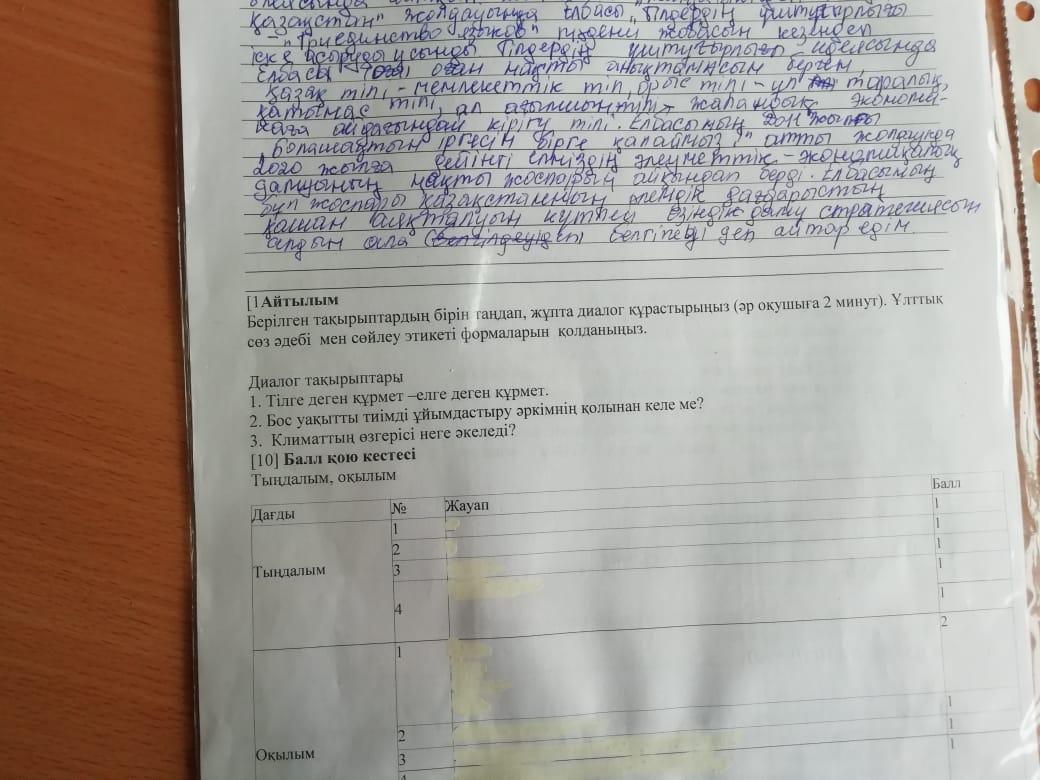 Қазақстан" жолдауында Елбасы "Тілдердің үштұғырлығы
- "Триединство языков" мәдени жобасын кезеңдеп
іске асыруды ұсынды. Тілдердің үштұғырлығы идеясында
Елбасы оған нақты анықтамасын берген.
Қазақ тілі - мемлекеттік тіл, орыс тілі - ұл таралық
қатынас тілі, ал ағылшын тілі - жаһандық экономи-
каға ойдағыдай кірігу тілі. Елбасының 2011 жылғы
"Болашақтың іргесін бірге қалаймыз!" атты жолдауында
2020 жылға дейінгі еліміздің әлеуметтік - экономикалық
дамуының нақты жоспарын айқындап берді. Елбасымның
бұл жоспары Қазақстанның әлемдік дағдарыстың
қашан аяқталуын күтпей өзіндік даму стратегиясын
алдын ала белгіледі деп айтар едім.
[1Айтылым
Берілген тақырыптардың бірін таңдап, жұпта диалог құрастырыңыз (әр оқушыға 2 минут). Ұлттық
сөз әдебі мен сөйлеу этикеті формаларын қолданыңыз.
Диалог тақырыптары
1. Тілге деген құрмет –елге деген құрмет.
2. Бос уақытты тиімді ұйымдастыру әркімнің қолынан келе ме?
3. Климаттың өзгерісі неге әкеледі?
[10] Балл қою кестесі
Тыңдалым, оқылым
Дағды № Жауап Балл
Тыңдалым 1 1
2 1
3 1
4 1
1
Оқылым 1 2
1
2 1
3 1
4